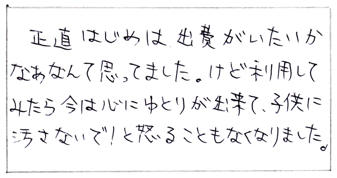 正直はじめは出費がいたいか
なあなんて思ってました。けど利用して
みたら今は心にゆとりが出来て、子供に
汚さないで！と怒ることもなくなりました。